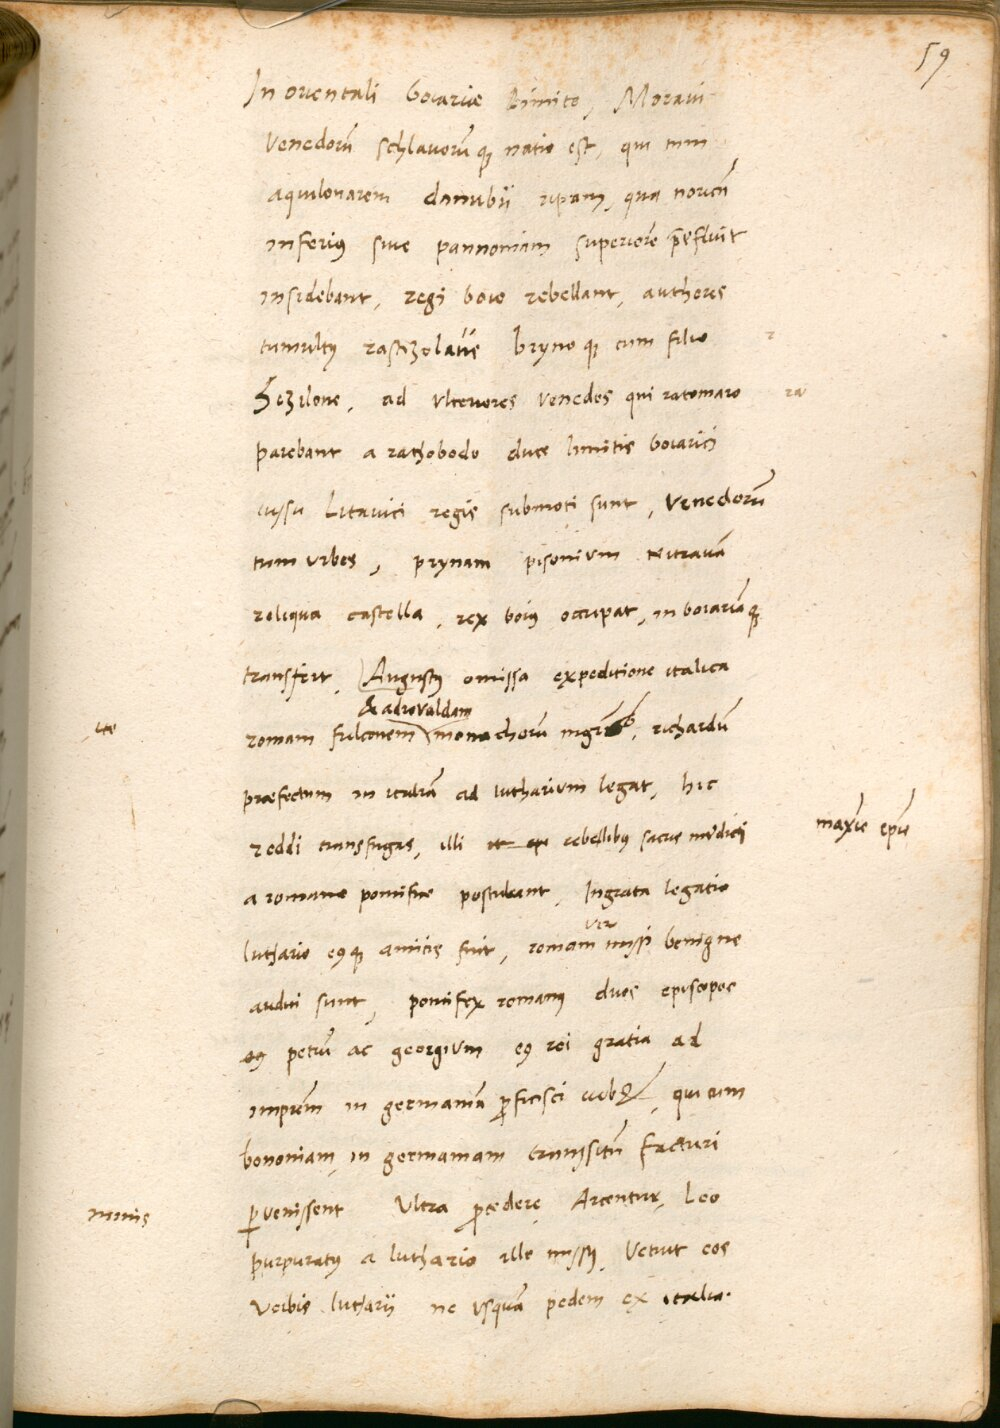 59
In orientali boiariae limite, Moraui
Venedorū schlauorūq3 natio est, qui tum
aquilonarem danubii ripam, qua noricū
inferius siue pannoniam superiorē p̄terfluit
insidebant, regi boio rebellant, authores
tumultus rastizolaus brynoq3 cum filio
r
Hezilone, ad vlteriores venedos qui ratomaro
ra
parebant a rathobodo duce limitis boiarici
iussu Litauici regis submoti sunt, Venedorū
tum vrbes, prynam pisonium nitrauā
reliqua castella, rex boius occupat, in boiariāq3
transfert, Augustus omissa expeditione italica
& adroualdum
romam fulconem monachorū, richardū
ite
praefectum in italiā ad lutharium legat, hic
reddi transfugas, illi rebellibus sacris interdici
maxīe epīs
a romano pontifice postulant, Ingrata legatio
lutharo eiusq3 amicis fuit, romam missi benigne
ver
auditi sunt, pontifex romanus duos episcopos
petrū ac georgium eius rei gratia ad
imprēm in germaniā proficisci iubet, qui cum
bononiam in germaniam transitū facturi
peruenissent Vltra procedere Arcentur, Leo
minis
purpuratus a luthario ille missus, Vetuit eos
verbis lutharii ne vsquā pedem ex italia.